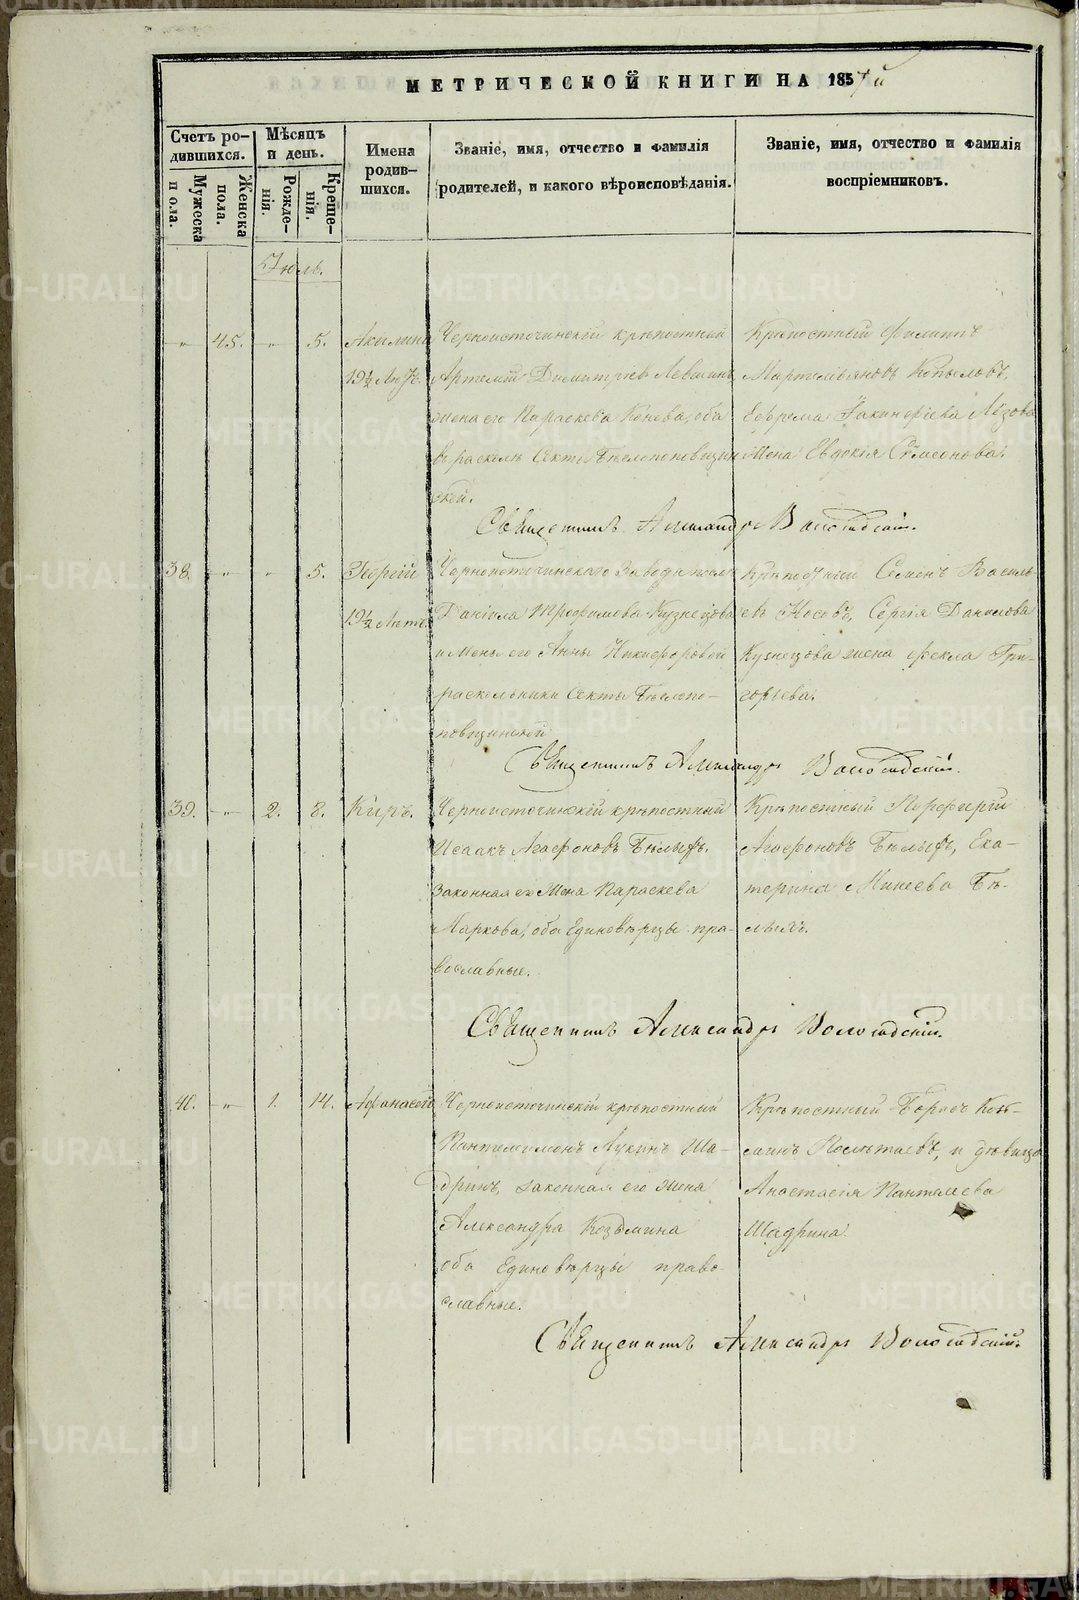 МЕТРИЧЕСКОЙ КНИГИ НА 1857 й
Счетъ ро-
дившихся.
Мужеска
пола.
Женска
пола.
Мѣсяцъ
и день.
Рожде-
нія.
Креще-
нія.
Имена
родив-
шихся.
Званіе, имя, отчество и фамилія
родителей, и какого вѣроисповѣданія.
Званіе, имя, отчество и фамилія
воспріемниковъ.
Іюль.
" 45. " 5. Акилина
19½ лѣтъ.
Черноисточинской крѣпостный
Артемій Димитріевъ Левшинъ,
жена его Параскева Конева, оба
въ расколѣ секты Бѣглопоповщин
ской.
Крѣпостный Филиппъ
Мартемьяновъ Копыловъ,
Ефрема Іакинфіева Лѣзова
жена Евдокія Сѵмеонова.
Священникъ Александръ
38 " " 5. Георгій
19½ лѣтъ.
Черноисточинскаго Завода
Даніила Трофимова Кузнецова
и жены его Анны Никифоровой
раскольники секты Бѣглопо-
повщинской
Крѣпостный Семенъ Василь
евъ Носовъ, Сергія Данилова
Кузнецова жена Фекла Гри-
горьева.
Священникъ Александръ
39. " 2. 8. Киръ.
Черноисточинскій крѣпостный
Исаакъ Агафоновъ Бѣлыхъ,
Законная его жена Параскева
Маркова, оба Единовѣрцы пра-
вославные.
Крѣпостный Порфирій
Агафоновъ Бѣлыхъ, Ека-
терина Минеева Бѣ-
лыхъ.
Священникъ Александръ
40. " 1. 14. Афанасій
Черноисточинскій крѣпостный
Пантелимонъ Лукинъ Ша-
дринъ, законная его жена
Александра Козьмина
оба Единовѣрцы право-
славные.
Крѣпостный Борисъ Козь-
минъ и дѣвица
Анастасія Пантелѣева
Шадрина.
Священникъ Александръ
METRIKI.GASO-URAL.RU